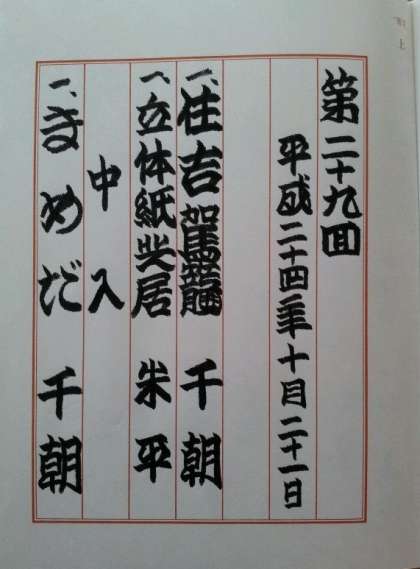 第二十九回
平成二十四年十月二十一日
一、住吉駕籠 千朝
一、立体紙芝居 米平
中入
一、まめだ 千朝